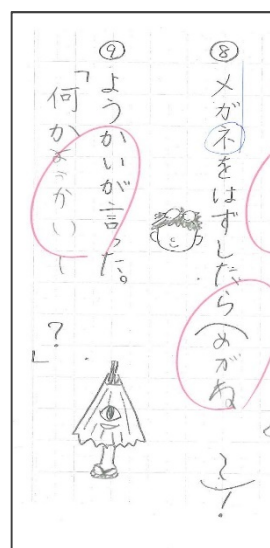 ⑧メガネをはずしたら(めがね〜!
⑨ようかいが言った。
「何かようかい〜?」